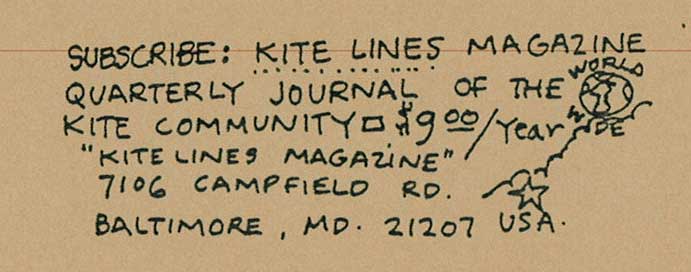 SUBSCRIBE: KITE LINES MAGAZINE
QUARTERLY JOURNAL OF THE WORLD WIDE
KITE COMMUNITY $9.00/Year
"KITE LINES MAGAZINE"
7106 CAMPFIELD RD.
BALTIMORE, MD. 21207 USA.